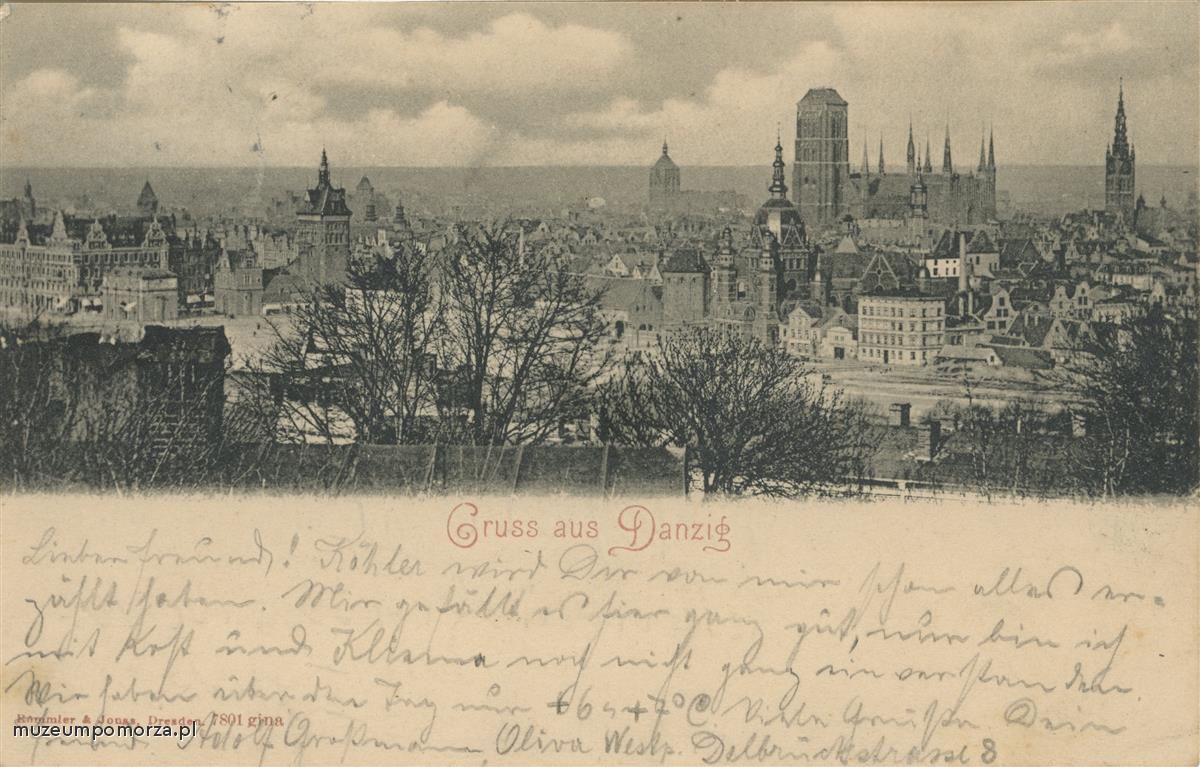 Gruss aus Danzig
Lieber Freund! Köhler wird Dir von mir schon alles er-
zählt haben. Mir gefällt es hier ganz gut, nur bin ich
mit Kost und Klima noch nicht ganz einverstanden.
Wir haben über den Tag nur +6 +7°C. Viele Grüße Dein
Römmler & Jonas, Dresden. 7801 gina
muzeumpomorza.pl
Freund. Adolf Großmann, Oliva Westp. Delbrückstrasse 8